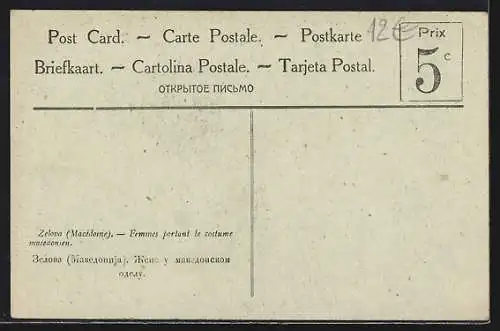 Post Card. — Carte Postale. — Postkarte
12€
Prix
5c
Briefkaart. — Cartolina Postale. — Tarjeta Postal.
ОТКРЫТОЕ ПИСЬМО
Zelovo (Macédoine). — Femmes portant le costume
macédonien.
Зелово (Македонија). Жене у македонском
оделу.